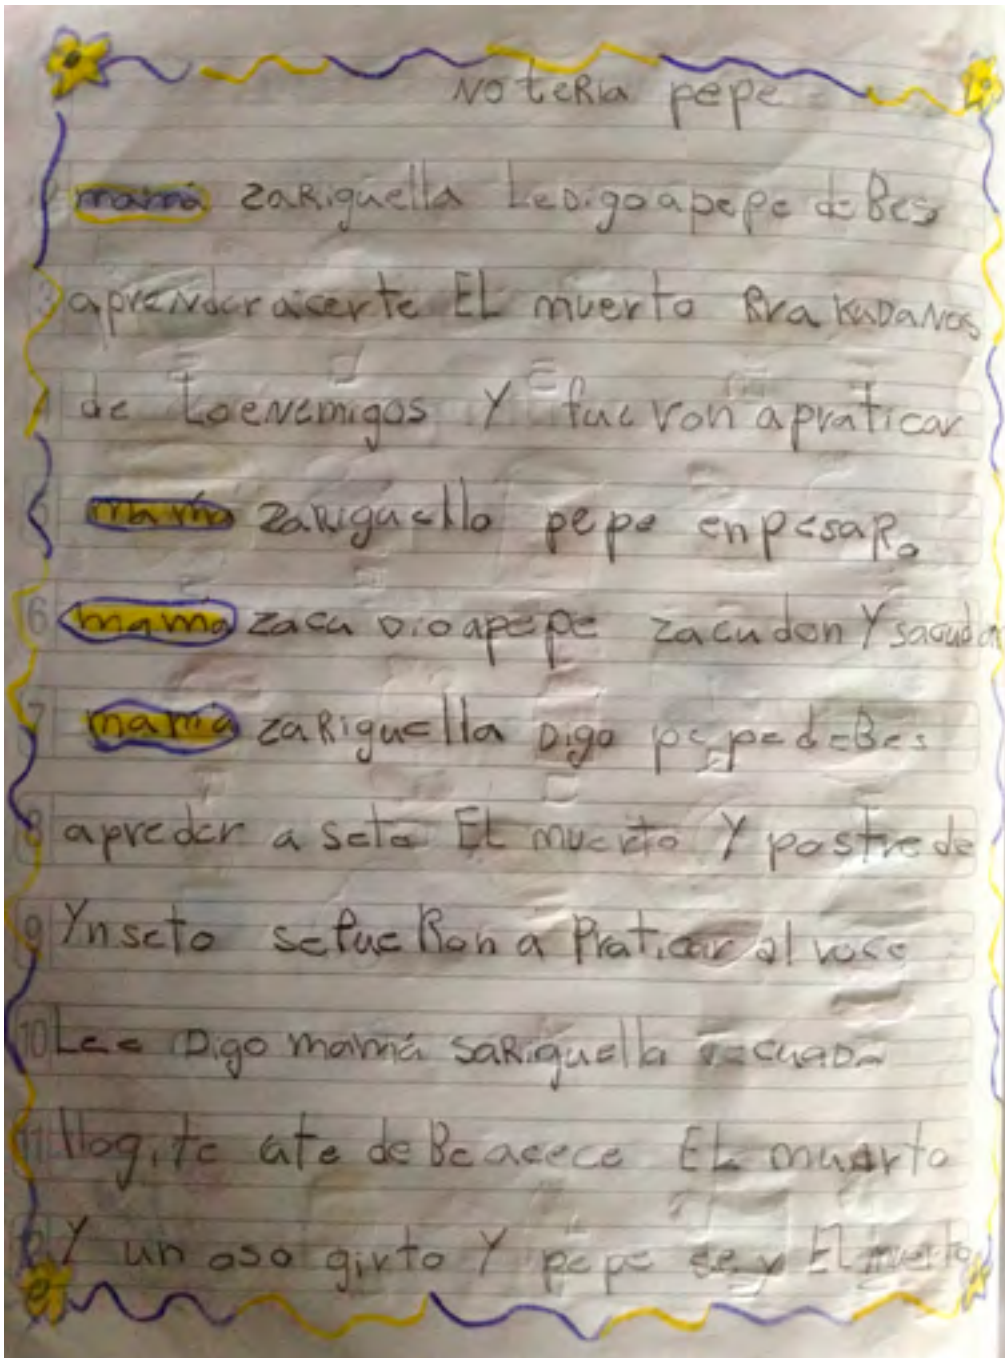 NoteRia pepe
mamá zaRiguella LeDigo a pepe deBes
aprender aicerte EL muerto
de Loenemigos Y fueron a praticar
mamá zaRiguella pepe enpesaR.
6 mama zacuDio a pepe zacudon Y sacudon
7 mamá zaRiguella Digo pepe deBes
8 apreder a seto EL muerto Y postre de
9 Ynseto sefueRon a Praticar al
10 Lee Digo mamá saRiguella
11 llogite ate deBe acece EL muerto
12 Y un oso girto Y pepe se y El muerto